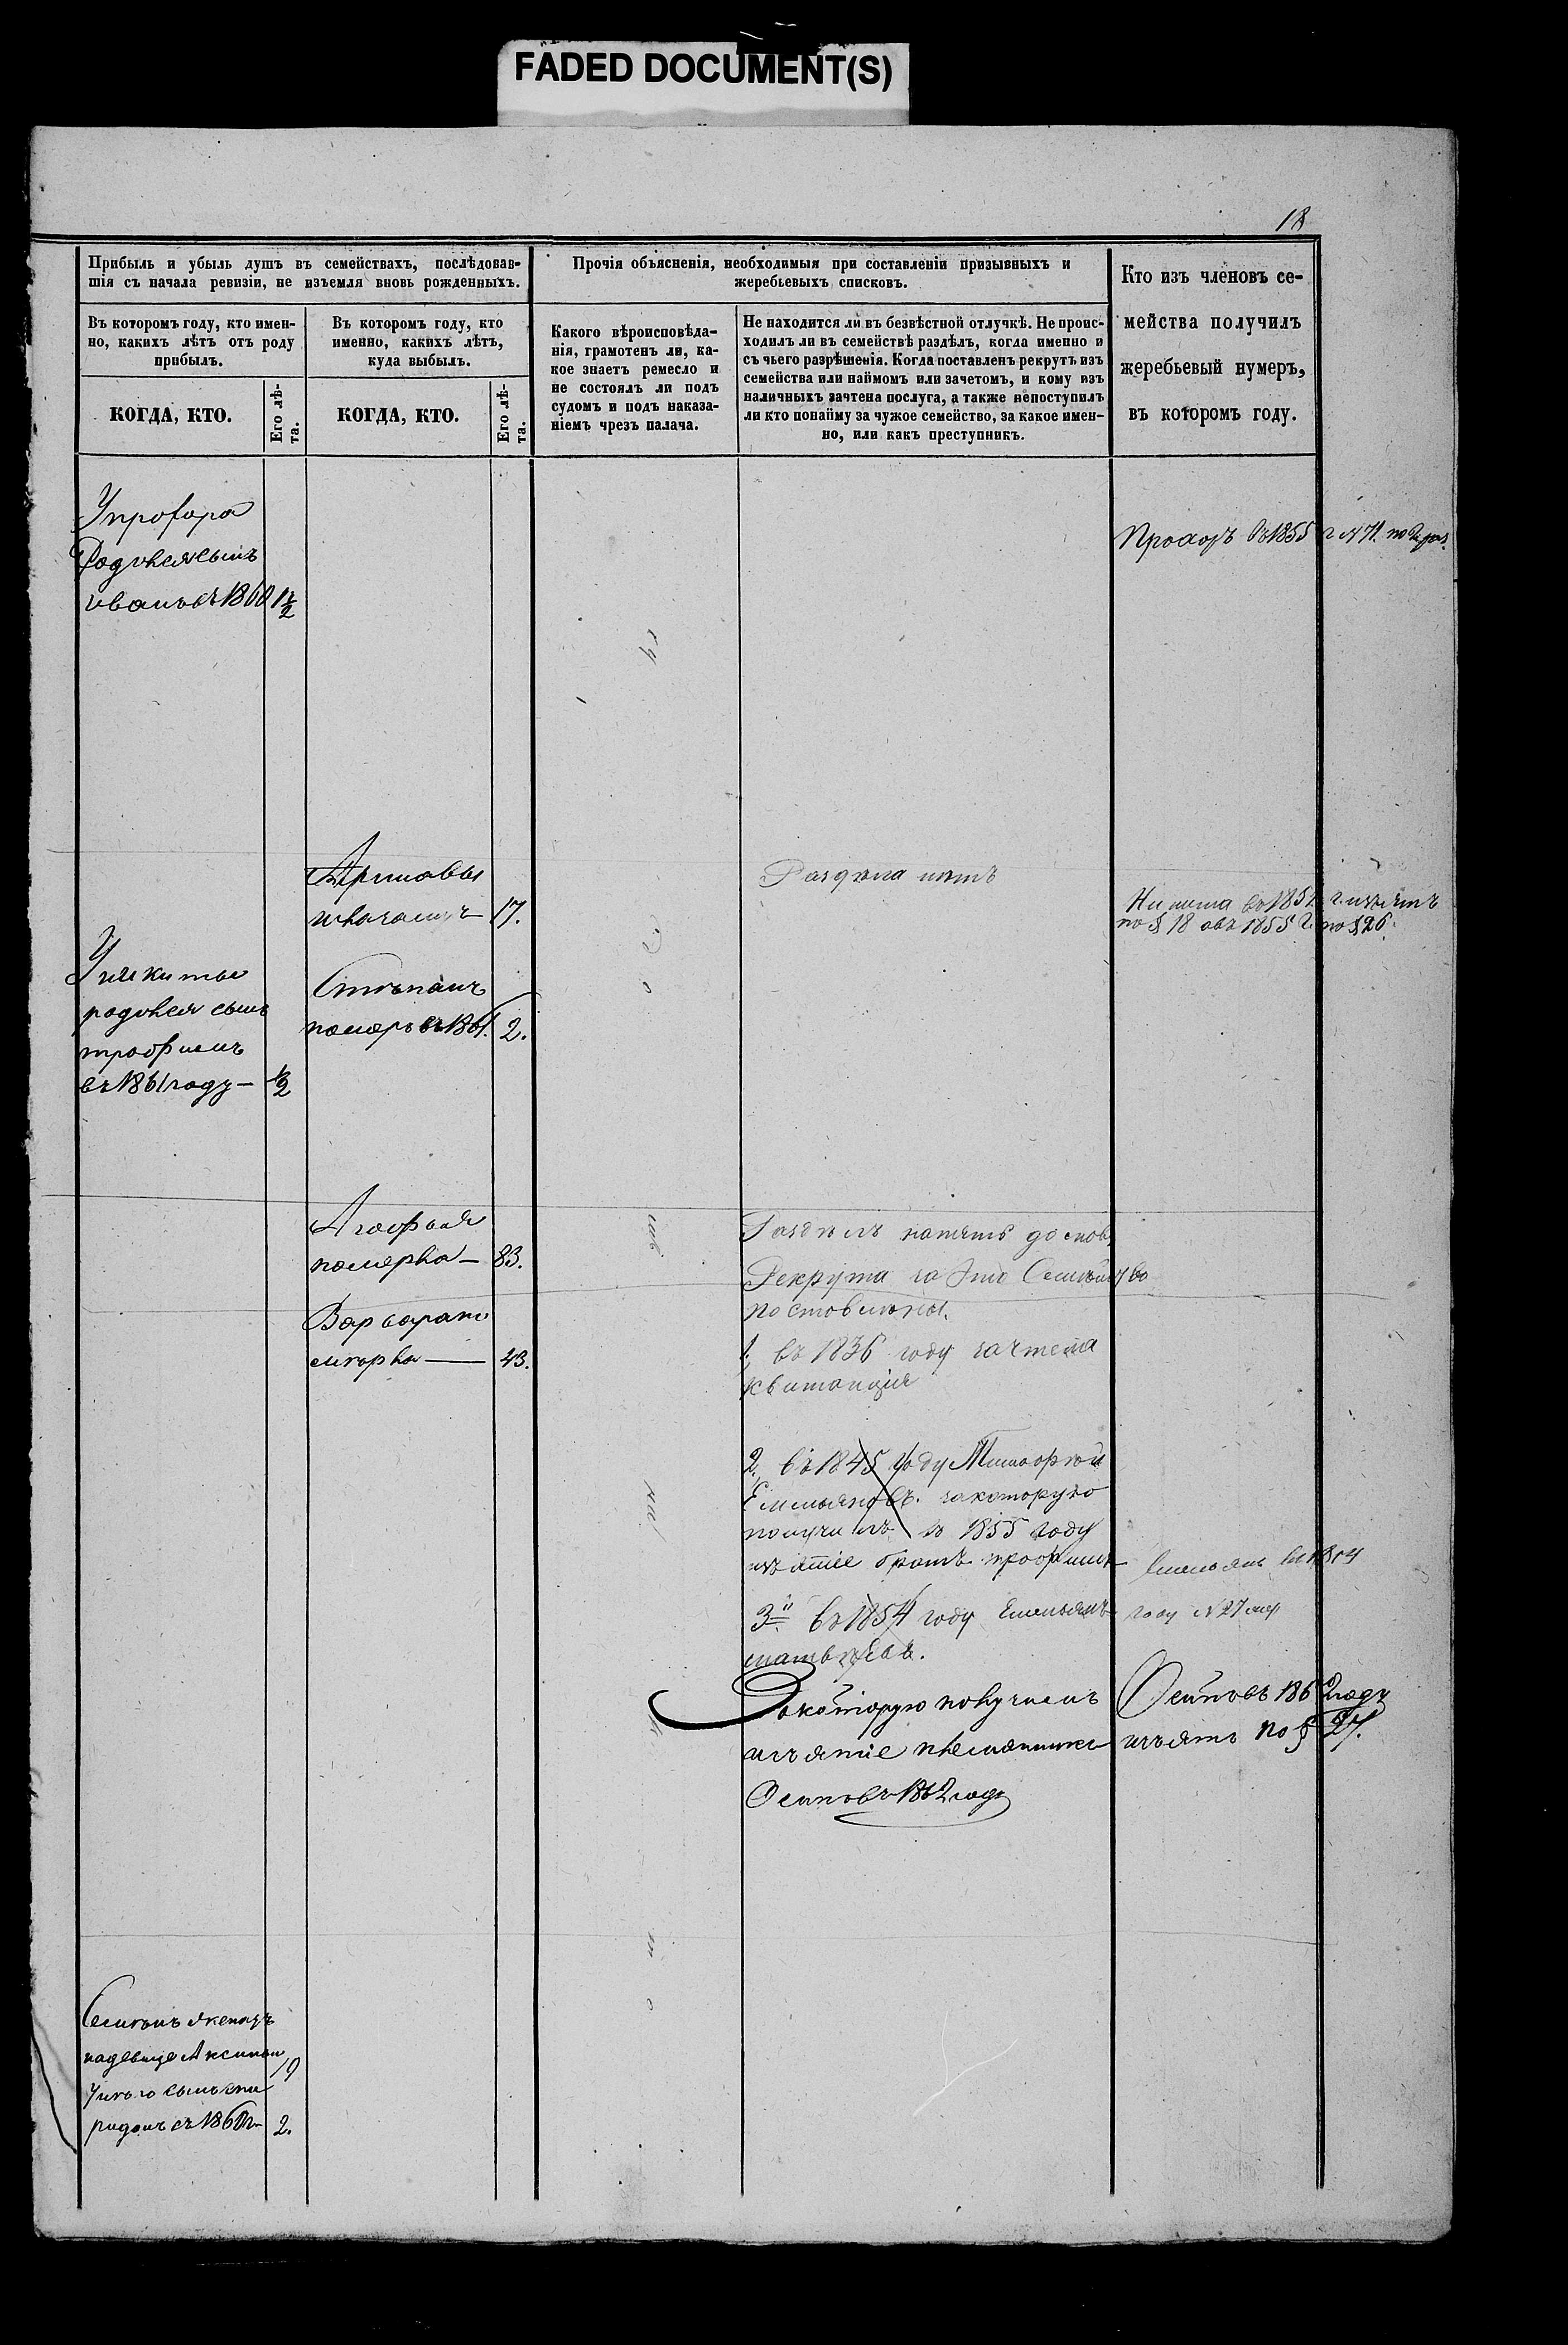 FADED DOCUMENT(S)
18
Прибыль и убыль душъ въ семействахъ, послѣдовав-
шія съ начала ревизіи, не изъемля вновь рожденныхъ.
Прочія объясненія, необходимыя при составленіи призывныхъ и
жеребьевыхъ списковъ.
Кто изъ членовъ се-
мейства получилъ
жеребьевый нумеръ,
въ которомъ году.
Въ которомъ году, кто имен-
но, какихъ лѣтъ отъ роду
прибылъ.
Въ которомъ году, кто
именно, какихъ лѣтъ,
куда выбылъ.
Какого вѣроисповѣда-
нія, грамотенъ ли, ка-
кое знаетъ ремесло и
не состоялъ ли подъ
судомъ и подъ наказа-
ніемъ чрезъ палача.
Не находится ли въ безвѣстной отлучкѣ. Не проис-
ходилъ ли въ семействѣ раздѣлъ, когда именно и
съ чьего разрѣшенія. Когда поставленъ рекрутъ изъ
семейства или наймомъ или зачетомъ, и кому изъ
наличныхъ зачтена послуга, а также непоступилъ
ли кто понайму за чужое семейство, за какое имен-
но, или какъ преступникъ.
КОГДА, КТО.
Его лѣ-
та.
КОГДА, КТО.
Его лѣ-
та.
Родился сынъ
иванъ въ 1860 1½
Прохоръ въ 1855 г №71.
17.
Раздела нѣтъ
Никита въ
по § 18 а въ 1855 г. по § 26.
У никиты
родился сынъ
трофимъ
въ 1861 году — ½
Степанъ
померъ въ 1861. 2.
Агафья
померла — 83.
Варвара по
мерла — 43.
Раздѣлъ на пять домов.
Рекрута за это Семейство
поставлены.
1, въ 1836 году зачтена
квитанція
2, въ 1845 году Тимофей
Емельяновъ. за которую
получилъ в 1855 году
изъятіе братъ трофимъ
3й въ 1854 году Емельянъ
матвеевъ.
За которую получилъ
изъятіе племянникъ
Осипъ въ 1862 году
Емельянъ
году №27
Осипъ въ 1862 году
изъятъ по § 27.
19
2.